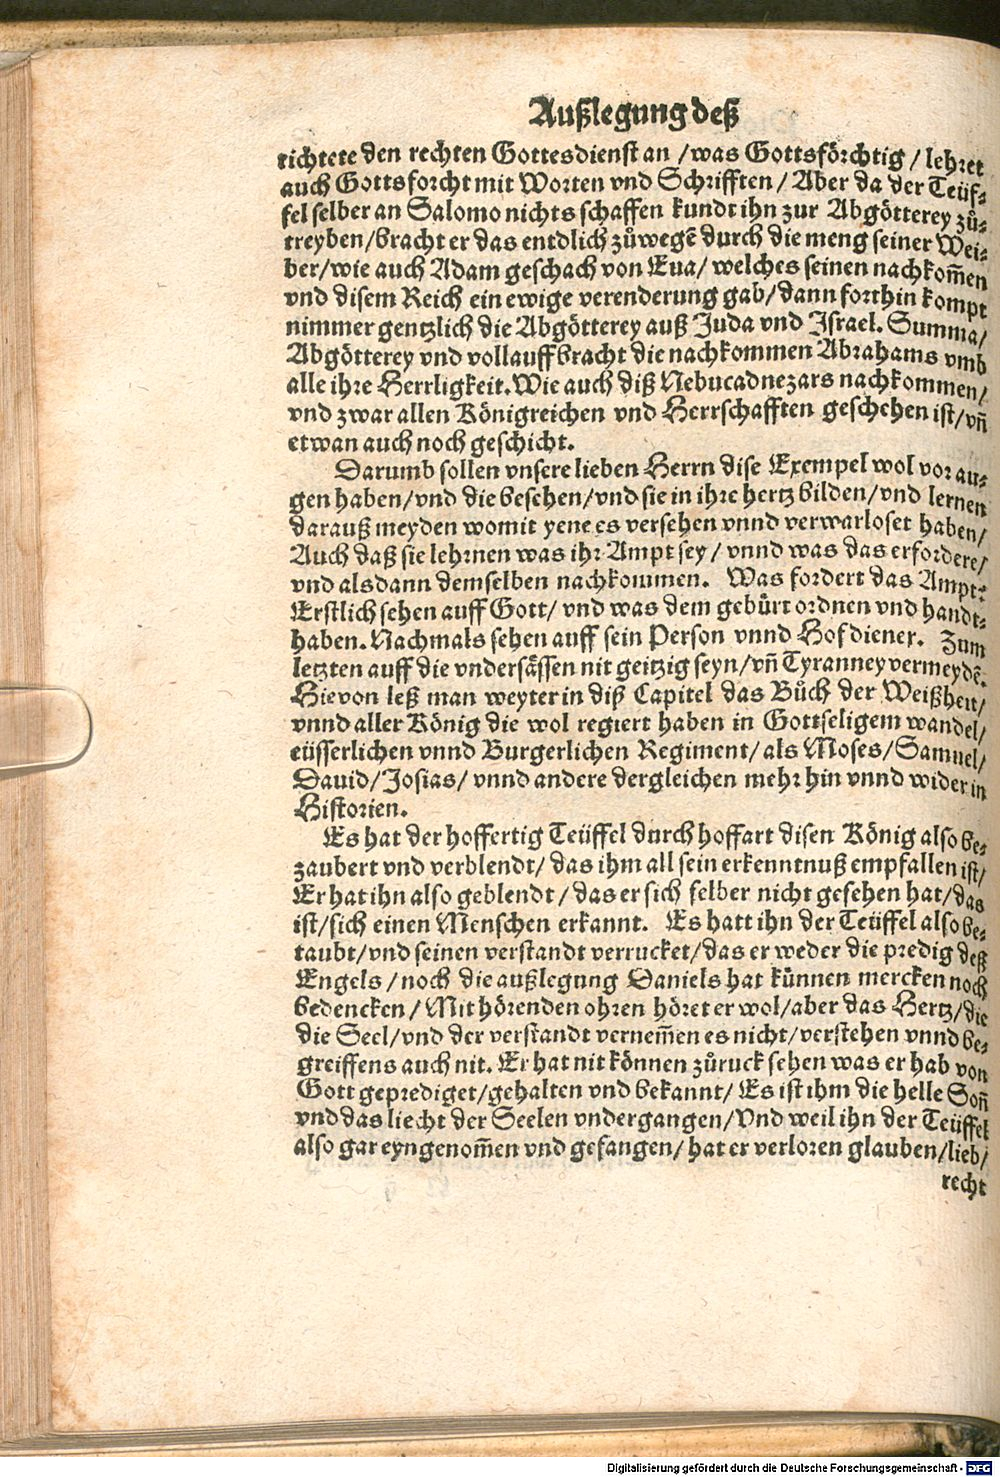 Außlegung deß
richtete den rechten Gottesdienst an /was Gottsförchtig / lehret
auch Gottsforcht mit Worten vnd Schrifften / Aber da der Teüf⸗
fel selber an Salomo nichts schaffen kundt ihn zur Abgötterey zů⸗
treyben/bracht er das entdlich zůwegẽ durch die meng seiner Wei⸗
ber/wie auch Adam geschach von Eua/ welches seinen nachkom̃en
vnd disem Reich ein ewige verenderung gab/dann forthin kompt
nimmer gentzlich die Abgötterey auß Juda vnd Israel. Summa/
Abgötterey vnd vollauff bracht die nachkommen Abrahams vmb
alle ihre Herrligkeit. Wie auch diß Nebucadnezars nachkommen/
vnd zwar allen Königreichen vnd Herrschafften geschehen ist/vñ
etwan auch noch geschicht.
Darumb sollen vnsere lieben Herrn dise Exempel wol vor au⸗
gen haben/vnd die besehen/vnd sie in ihre hertz bilden/vnd lernen
darauß meyden womit yene es versehen vnnd verwarloset haben/
Auch daß sie lehrnen was ihr Ampt sey / vnnd was das erfordere/
vnd alsdann demselben nachkommen. Was fordert das Ampt:
Erstlich sehen auff Gott/ vnd was dem gebürt ordnen vnd handt⸗
haben. Nachmals sehen auff sein Person vnnd Hofdiener. Zum
letzten auff die vndersässen nit geitzig seyn/vñ Tyranney vermeydẽ.
Hievon leß man weyter in diß Capitel das Bůch der Weißheit/
vnnd aller König die wol regiert haben in Gottseligem wandel/
eüsserlichen vnnd Burgerlichen Regiment/als Moses/Samuel/
Dauid/Josias/ vnnd andere dergleichen mehr hin vnnd wider in
Historien.
Es hat der hoffertig Teüffel durch hoffart disen König also be⸗
zaubert vnd verblendt/ das ihm all sein erkenntnuß empfallen ist/
Er hat ihn also geblendt / das er sich selber nicht gesehen hat/das
ist/sich einen Menschen erkannt. Es hatt ihn der Teüffel also be⸗
taubt/vnd seinen verstandt verrucket/das er weder die predig deß
Engels /noch die außlegung Daniels hat künnen mercken noch
bedencken / Mit hörenden ohren höret er wol/aber das Hertz/die
die Seel/vnd der verstandt vernem̃en es nicht/verstehen vnnd be⸗
greiffens auch nit. Er hat nit können zůruck sehen was er hab von
Gott geprediget/gehalten vnd bekannt/ Es ist ihm die helle Soñ
vnd das liecht der Seelen vndergangen/Vnd weil ihn der Teüffel
also gar eyngenom̃en vnd gefangen/ hat er verloren glauben/lieb/
recht
Digitalisierung gefördert durch die Deutsche Forschungsgemeinschaft - DFG